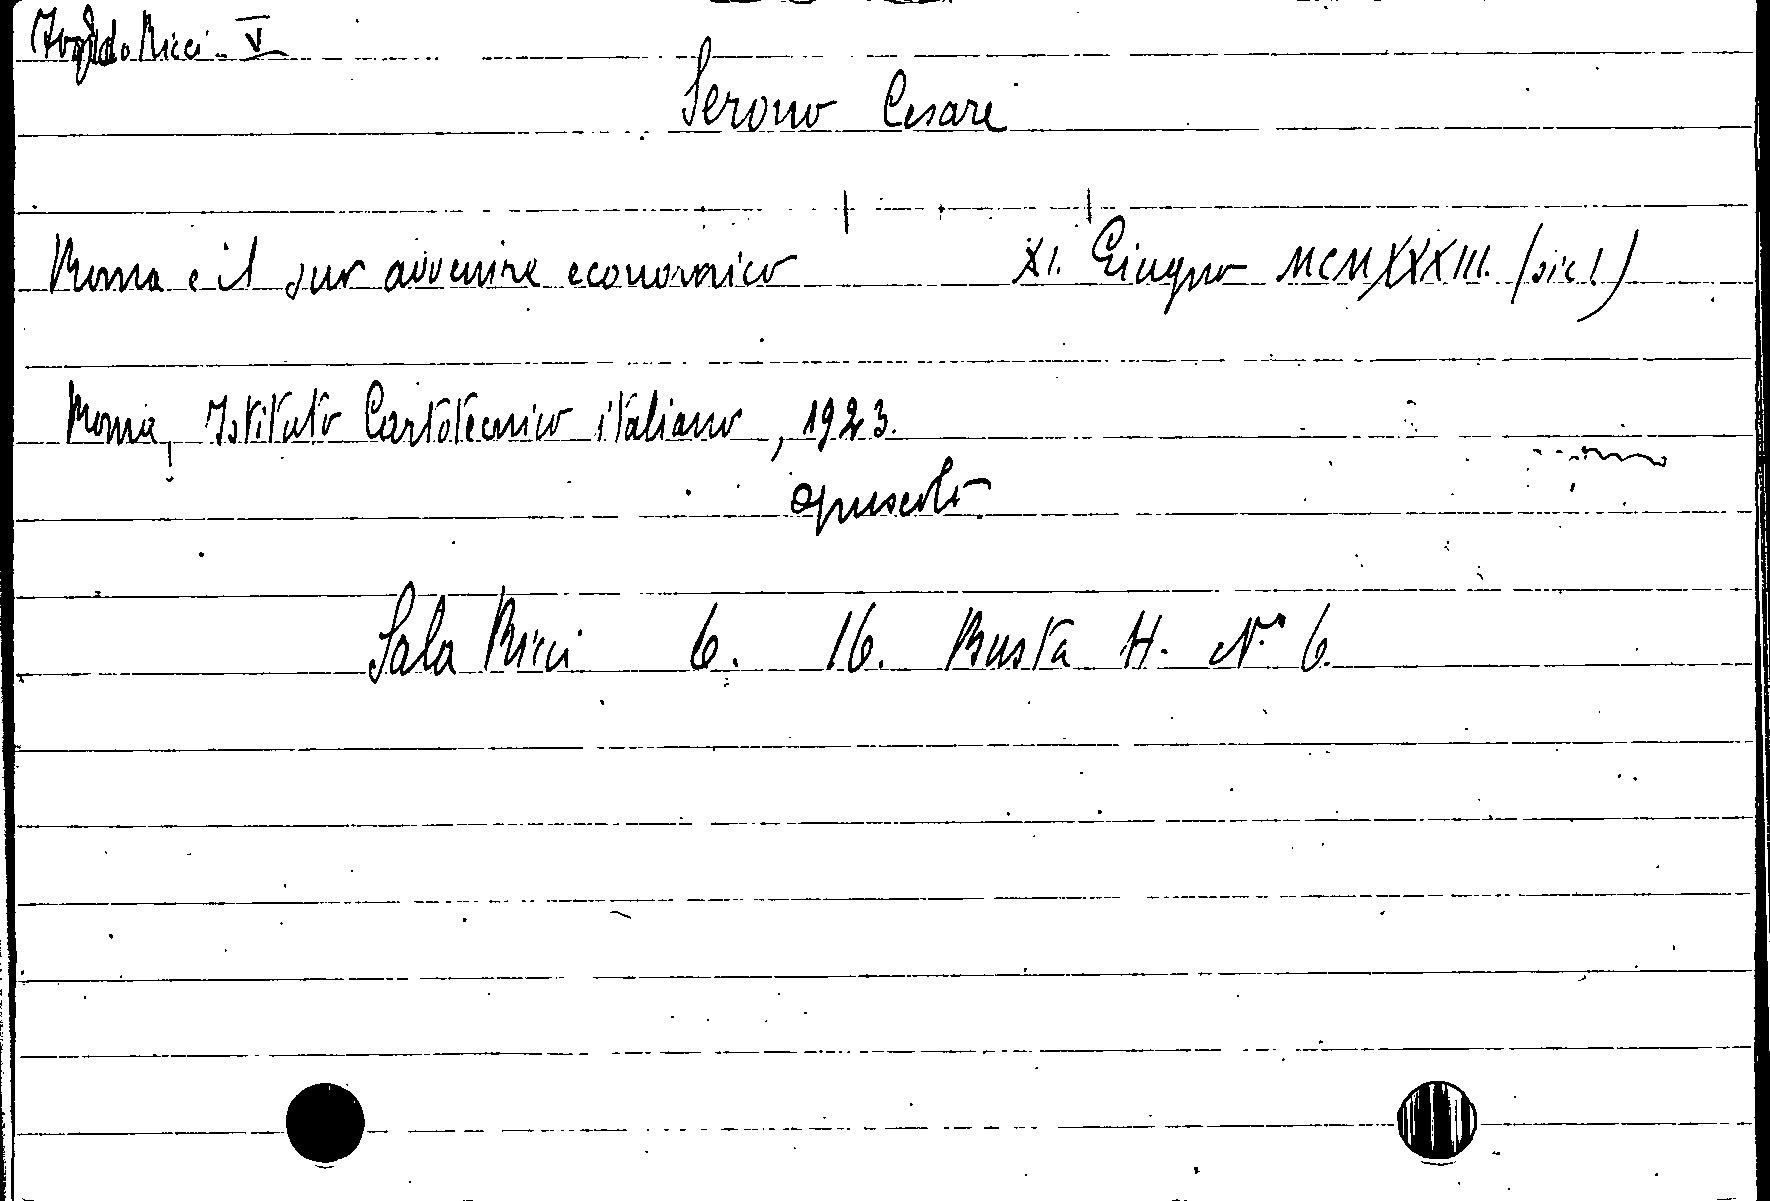 Ricci V
Serono Cesare
Roma e il suo avvenire economico XI. Giugno MCMXXXIII. (sic!)
Roma, Istituto Cartotecnico italiano, 1923.
opuscolo.
Sala Ricci 6. 16. Busta H. N.° 6.